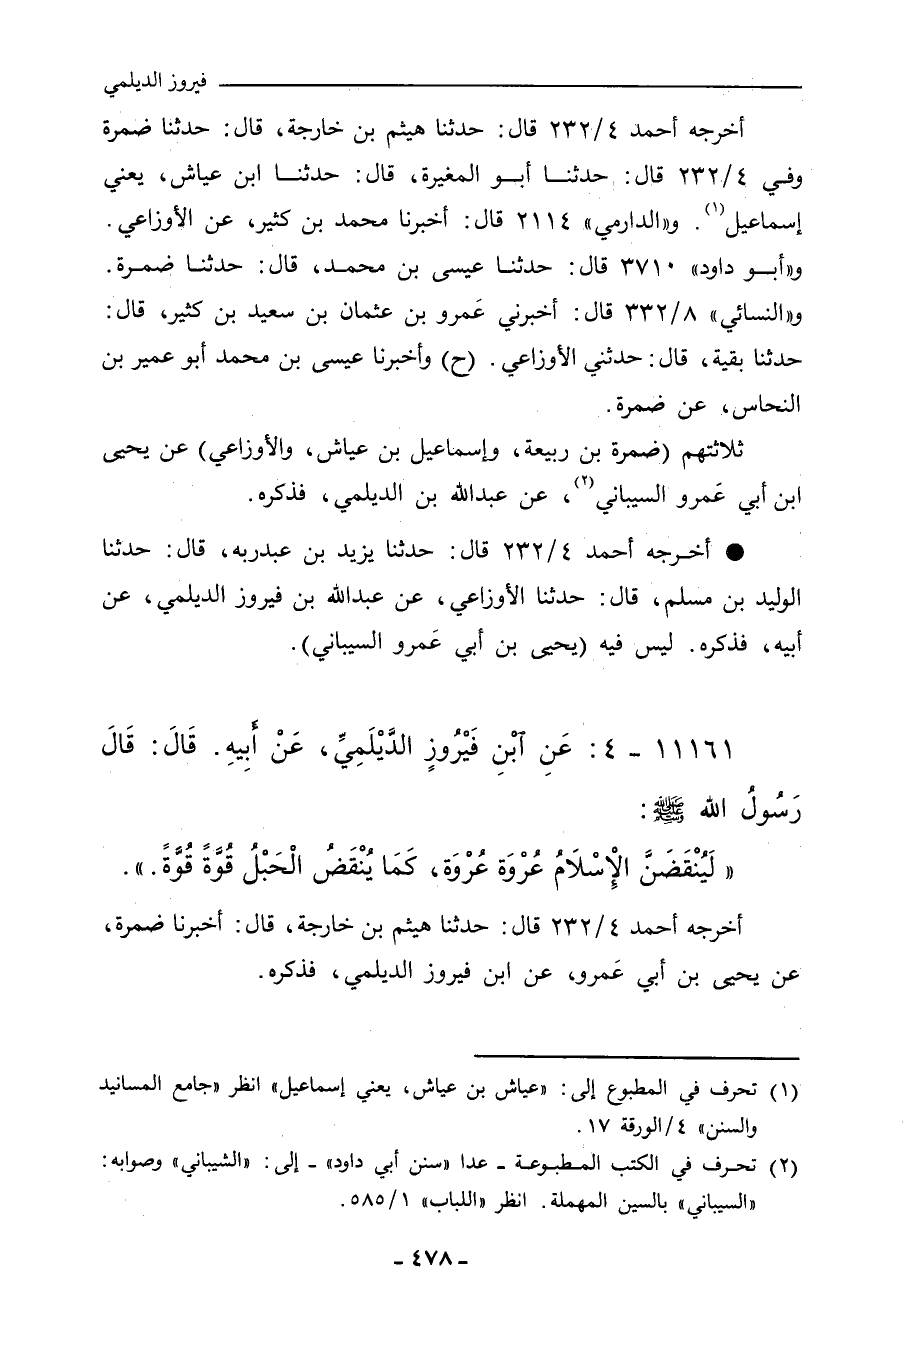 فيروز الديلمي
أخرجه أحمد ٢٣٢/٤ قال: حدثنا هيثم بن خارجة، قال: حدثنا ضمرة
وفي ٢٣٢/٤ قال: حدثنا أبو المغيرة، قال: حدثنا ابن عياش، يعني
إسماعيل(١). و«الدارمي» ٢١١٤ قال: أخبرنا محمد بن كثير، عن الأوزاعي.
و«أبو داود» ٣٧١٠ قال: حدثنا عيسى بن محمد، قال: حدثنا ضمرة.
و«النسائي» ٣٣٢/٨ قال: أخبرني عَمرو بن عثمان بن سعيد بن كثير، قال:
حدثنا بقية، قال: حدثني الأوزاعي. (ح) وأخبرنا عيسى بن محمد أبو عمير بن
النحاس، عن ضمرة.
ثلاثتهم (ضمرة بن ربيعة، وإسماعيل بن عياش، والأوزاعي) عن يحيى
ابن أبي عَمرو السيباني(٢)، عن عبدالله بن الديلمي، فذكره.
● أخرجه أحمد ٢٣٢/٤ قال: حدثنا يزيد بن عبدربه، قال: حدثنا
الوليد بن مسلم، قال: حدثنا الأوزاعي، عن عبدالله بن فيروز الديلمي، عن
أبيه، فذكره. ليس فيه (يحيى بن أبي عَمرو السيباني).
١١١٦١ - ٤: عَنِ ٱبْنِ فَيْرُوزٍ الدَّيْلَمِيِّ، عَنْ أَبِيهِ. قَالَ: قَالَ
رَسُولُ الله ﷺ:
« لَيُنْقَضَنَّ الْإِسْلَامُ عُرْوَة عُرْوَة، كَمَا يُنْقَضُ الْحَبْلُ قُوَّةً قُوَّةً. ».
أخرجه أحمد ٢٣٢/٤ قال: حدثنا هيثم بن خارجة، قال: أخبرنا ضمرة،
عن يحيى بن أبي عَمرو، عن ابن فيروز الديلمي، فذكره.
(١) تحرف في المطبوع إلى: «عياش بن عياش، يعني إسماعيل» انظر «جامع المسانيد
والسنن» ٤/الورقة ١٧.
(٢) تحرف في الكتب المطبوعة - عدا «سنن أبي داود» - إلى: «الشيباني» وصوابه:
«السيباني» بالسين المهملة. انظر «اللباب» ٥٨٥/١.
- ٤٧٨ -